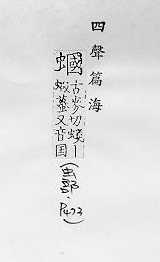 四聲篇海
蟈
古麥切螻｜
蝦蟇又音国
(虫部.
P473)